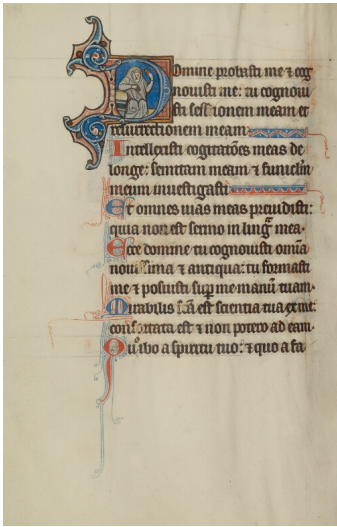 Domine probasti me ⁊ cog
nouisti me: tu cognoui
sti sessionem meam et
resurrectionem meam·
Intellexisti cogitatões meas de
longe: semitam meam ⁊ funiclm̄
meum inuestigasti
Et omnes uias meas preuidisti:
quia non est sermo in lingͣ mea·
Ecce domine tu cognouisti omīa
nouissima ⁊ antiqua: tu formasti
me ⁊ posuisti sup̄ me manū tuam·
Mirabilis fc̄a est scientia tua ex me:
confortata est ⁊ non potero ad eam·
Quo ibo a spiritu tuo: ⁊ quo a fa